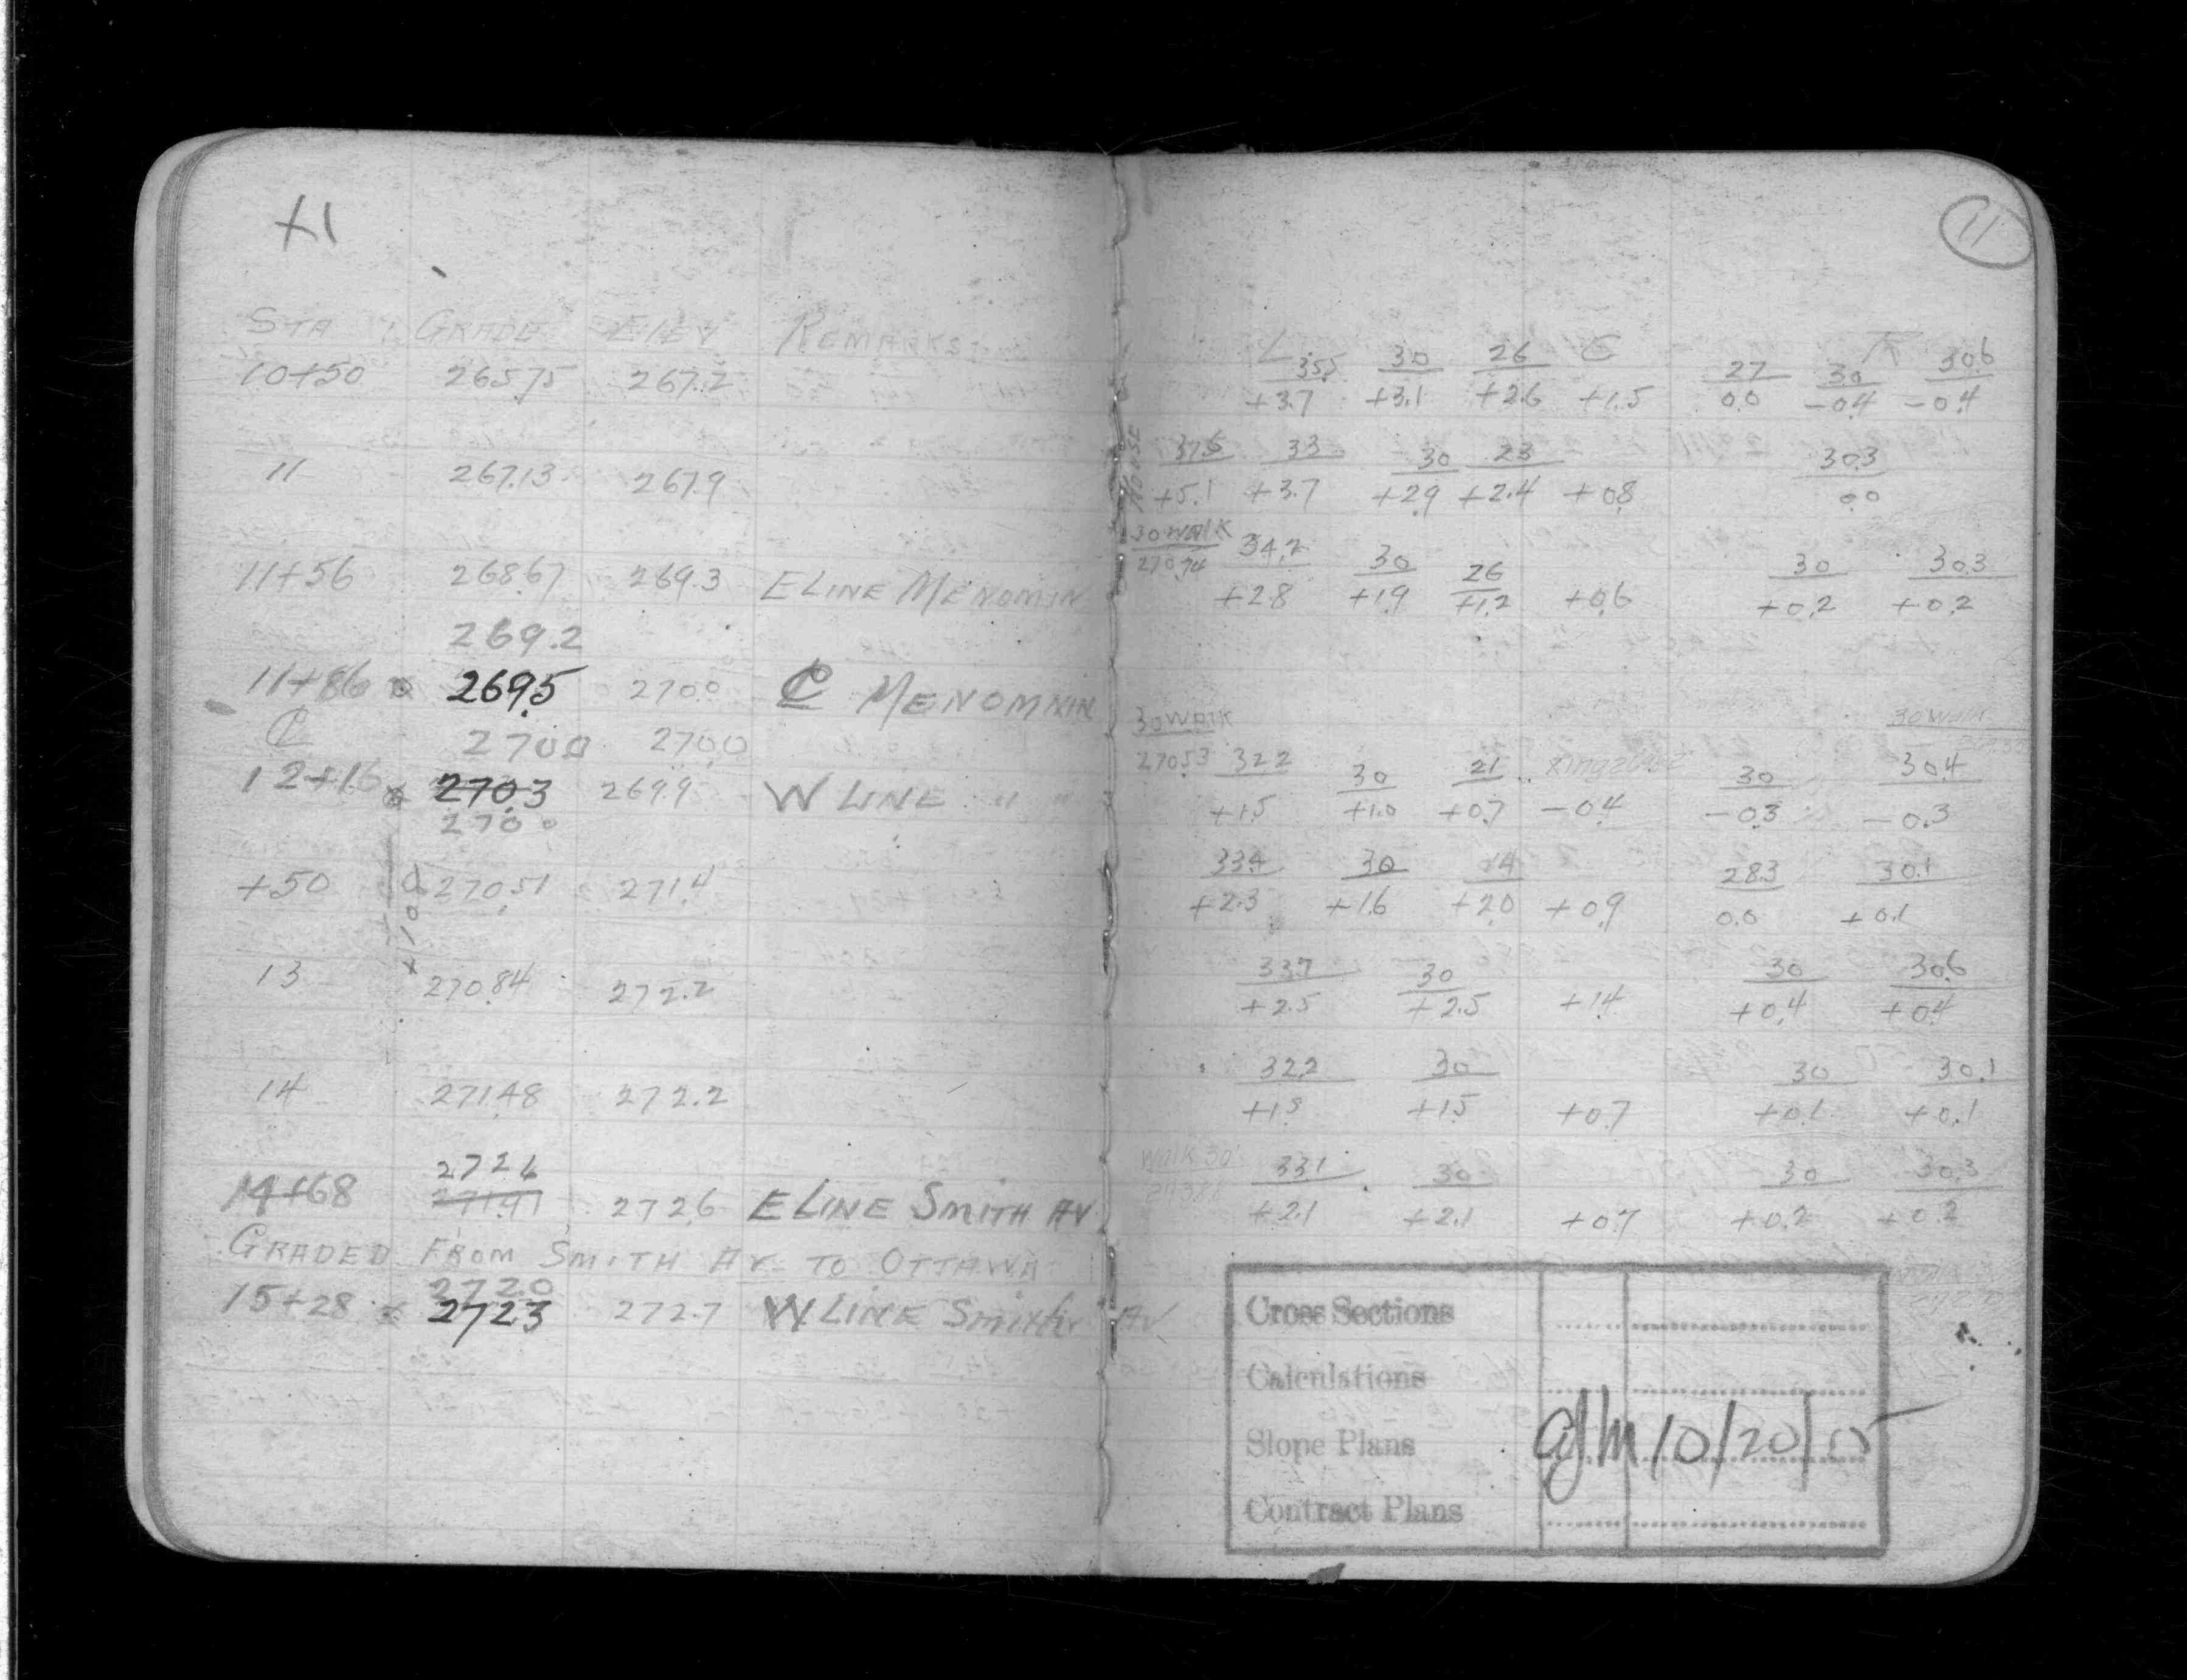 11
STA GRADE ELEV REMARKS
10+50 265.75 267.2
11 267.13 267.9
11+56 268.67 269.3 E LINE MENOMIN
269.2
11+86 269.5 270.0 ℄ MENOMNIN
℄ 270.0 270.0
12+16 270.3 269.9 W LINE " "
270.0
+50 270.51 271.4
13 270.84 272.2
14 271.48 272.2
272.6
14+68 271.91 272.6 E LINE SMITH AV
GRADED FROM SMITH AV TO OTTAWA
272.0
15+28 272.3 272.7 W LINE Smith AV
11
L C R
35.5 30 26 27 30 30.6
+3.7 +3.1 +2.6 +1.5 0.0 -0.4 -0.4
HOUSE
37.6 33 30 23 30.3
+5.1 +3.7 +2.9 +2.4 +0.8 0.0
30 WALK 34.2 30 26 30 30.3
270.74 +2.8 +1.9 +1.2 +0.6 +0.2 +0.2
30 WALK 30 WALK
270.53 32.2 30 21 30 30.4
+1.5 +1.0 +0.7 -0.4 -0.3 -0.3
33.4 30 14 28.3 30.1
+2.3 +1.6 +2.0 +0.9 0.0 +0.1
33.7 30 30 30.6
+2.5 +2.5 +1.4 +0.4 +0.4
32.2 30 30 30.1
+1.5 +1.5 +0.7 +0.1 +0.1
WALK 30' 33.1 30 30 30.3
+2.1 +2.1 +0.7 +0.2 +0.2
Cross Sections
Calculations
Slope Plans 10/20/15
Contract Plans